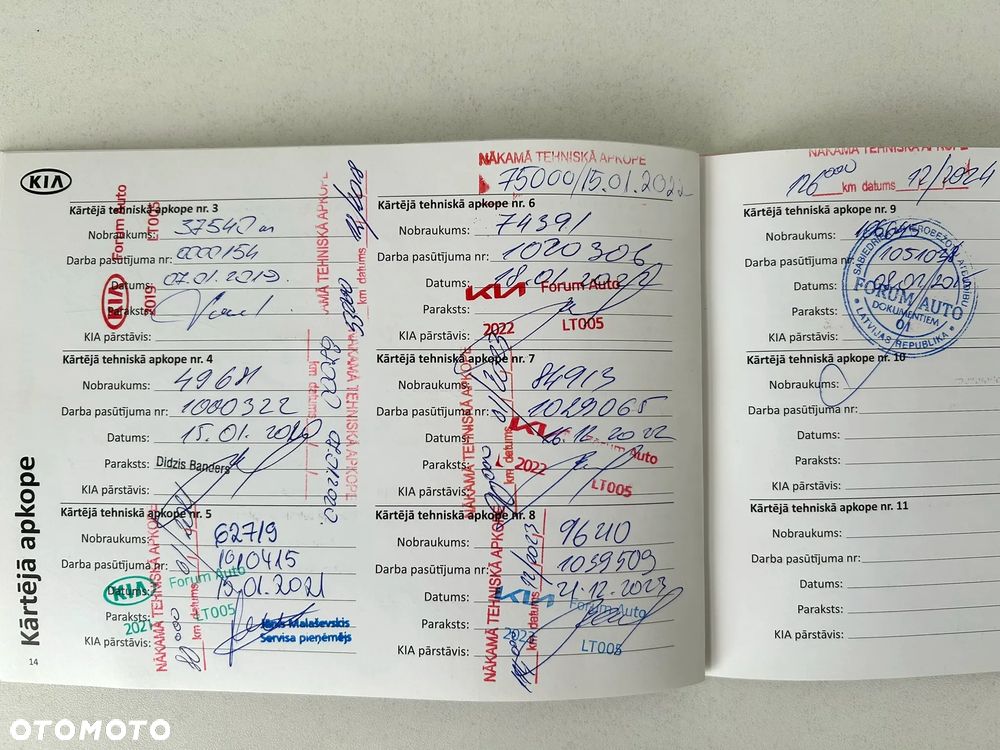 KIA
Kārtējā apkope
14
Kārtējā tehniskā apkope nr. 3
Nobraukums: 37540
Darba pasūtījuma nr: 0000154
Datums: 07.01.2019.
Paraksts:
KIA pārstāvis:
KIA Forum Auto
2019 LT005
NĀKAMĀ TEHNISKĀ APKOPE
km datums
Kārtējā tehniskā apkope nr. 4
Nobraukums:
Darba pasūtījuma nr: 1000322
Datums: 15.01.2020
Paraksts: Didzis Banders
KIA pārstāvis:
NĀKAMĀ TEHNISKĀ APKOPE
km datums
Kārtējā tehniskā apkope nr. 5
Nobraukums: 62719
Darba pasūtījuma nr: 1010415
Datums: 15.01.2021
Paraksts:
KIA pārstāvis:
KIA Forum Auto
2021 LT005
Servisa pieņēmējs
NĀKAMĀ TEHNISKĀ APKOPE
km datums
NĀKAMĀ TEHNISKĀ APKOPE
75000/15.01.2022
Kārtējā tehniskā apkope nr. 6
Nobraukums: 74391
Darba pasūtījuma nr: 1020306
Datums: 18.01.2022
Paraksts:
KIA pārstāvis:
KIA Forum Auto
2022 LT005
NĀKAMĀ TEHNISKĀ APKOPE
km datums 01/2023
Kārtējā tehniskā apkope nr. 7
Nobraukums: 84913
Darba pasūtījuma nr: 1029065
Datums: 16.12.2022
Paraksts:
KIA pārstāvis:
KIA Forum Auto
2022 LT005
NĀKAMĀ TEHNISKĀ APKOPE
km datums 12/2023
Kārtējā tehniskā apkope nr. 8
Nobraukums:
Darba pasūtījuma nr:
Datums: 21.12.2023
Paraksts:
KIA pārstāvis:
KIA Forum Auto
LT005
NĀKAMĀ TEHNISKĀ APKOPE
km datums 12/2024
Kārtējā tehniskā apkope nr. 9
Nobraukums:
Darba pasūtījuma nr:
Datums:
Paraksts:
KIA pārstāvis:
FORUM AUTO
DOKUMENTIEM
01
LATVIJAS REPUBLIKA
Kārtējā tehniskā apkope nr. 10
Nobraukums:
Darba pasūtījuma nr:
Datums:
Paraksts:
KIA pārstāvis:
Kārtējā tehniskā apkope nr. 11
Nobraukums:
Darba pasūtījuma nr:
Datums:
Paraksts:
KIA pārstāvis:
OTOMOTO